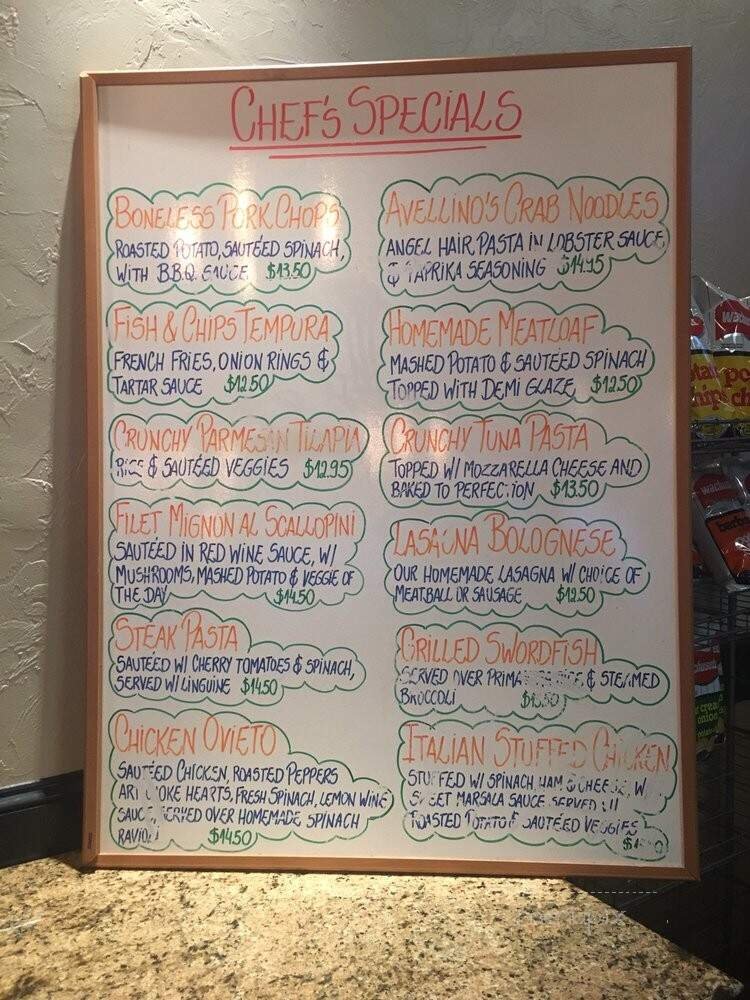 CHEF'S SPECIALS
BONELESS PORK CHOPS
ROASTED POTATO, SAUTÉED SPINACH,
WITH B.B.Q. SAUCE $13.50
FISH & CHIPS TEMPURA
FRENCH FRIES, ONION RINGS &
TARTAR SAUCE $12.50
CRUNCHY PARMESAN TILAPIA
RICE & SAUTÉED VEGGIES $12.95
FILET MIGNON AL SCALLOPINI
SAUTÉED IN RED WINE SAUCE, W/
MUSHROOMS, MASHED POTATO & VEGGIE OF
THE DAY $14.50
STEAK PASTA
SAUTÉED W/ CHERRY TOMATOES & SPINACH,
SERVED W/ LINGUINE $14.50
CHICKEN OVIETO
SAUTÉED CHICKEN, ROASTED PEPPERS
ARTICHOKE HEARTS, FRESH SPINACH, LEMON WINE
SAUCE, SERVED OVER HOMEMADE SPINACH
RAVIOLI $14.50
AVELLINO'S CRAB NOODLES
ANGEL HAIR PASTA IN LOBSTER SAUCE
& PAPRIKA SEASONING $14.95
HOMEMADE MEATLOAF
MASHED POTATO & SAUTÉED SPINACH
TOPPED WITH DEMI GLAZE $12.50
CRUNCHY TUNA PASTA
TOPPED W/ MOZZARELLA CHEESE AND
BAKED TO PERFECTION $13.50
LASAGNA BOLOGNESE
OUR HOMEMADE LASAGNA W/ CHOICE OF
MEATBALL OR SAUSAGE $12.50
GRILLED SWORDFISH
SERVED OVER RICE & STEAMED
BROCCOLI
ITALIAN STUFFED CHICKEN
STUFFED W/ SPINACH, HAM & CHEESE, W/
SWEET MARSALA SAUCE SERVED
ROASTED POTATO & SAUTÉED VEGGIES